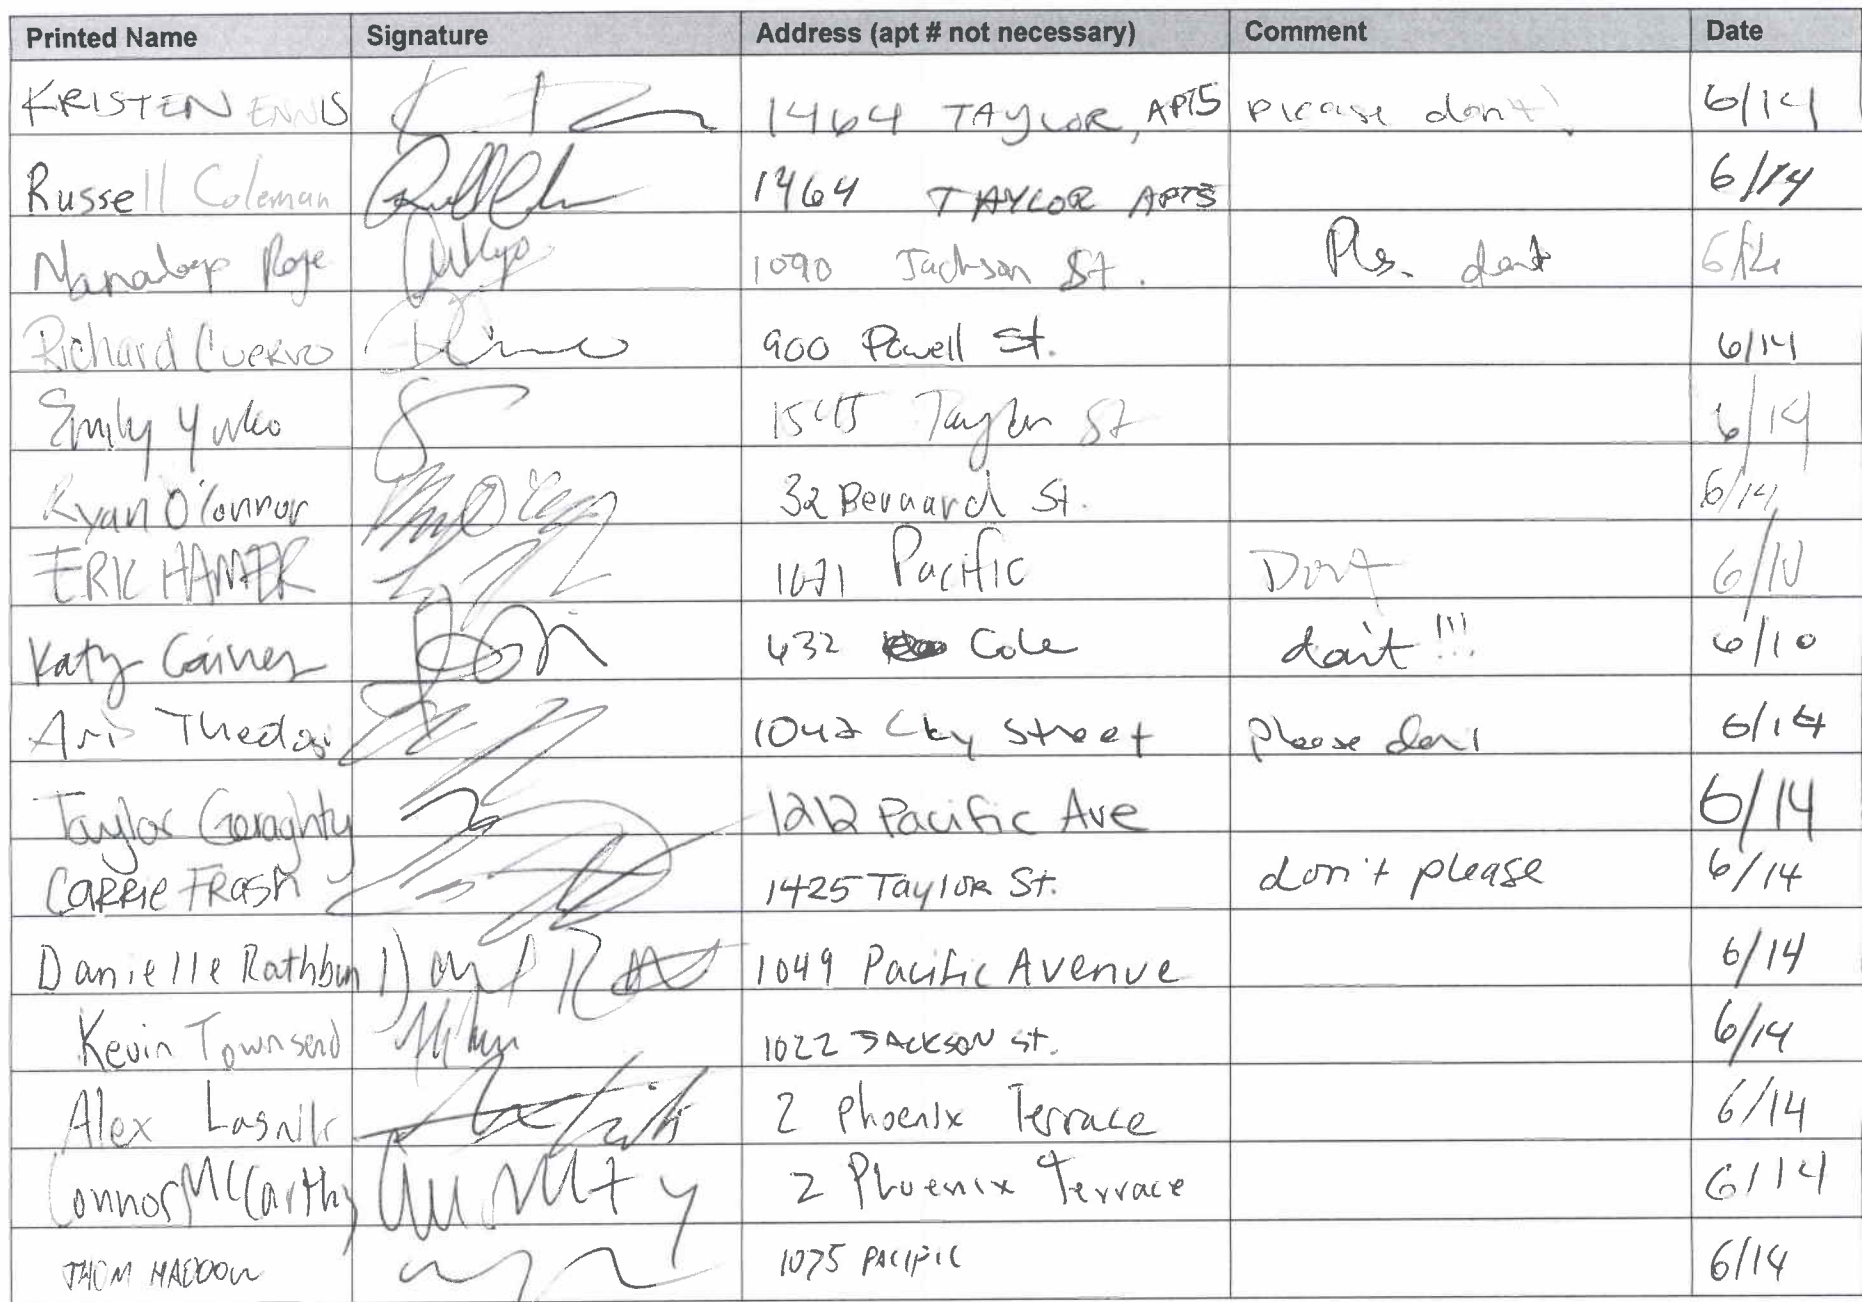 Printed Name Signature Address (apt # not necessary) Comment Date
KRISTEN ENNIS 1464 TAYLOR, APT5 please don't! 6/14
Russell Coleman 1464 TAYLOR APT5 6/14
1090 Jackson St. Pls. dont 6/14
Richard Cuervo 900 Powell St. 6/14
Emily Yuko 1545 Taylor St 6/14
Ryan O'Connor 32 Bernard St. 6/14
ERIC HAMER Pacific Dont
Katy Gaines 432 Cole don't!!! 6/10
Ari 1042 Clay Street please dont 6/14
Taylor Geraghty 1212 Pacific Ave 6/14
CARRIE FRASH 1425 Taylor St. don't please 6/14
Danielle Rathbun 1049 Pacific Avenue 6/14
Kevin Townsend 1022 JACKSON St. 6/14
Alex Lasnik 2 Phoenix Terrace 6/14
Connor McCarthy 2 Phoenix Terrace 6/14
THOM HADDOW 1075 PACIFIC 6/14